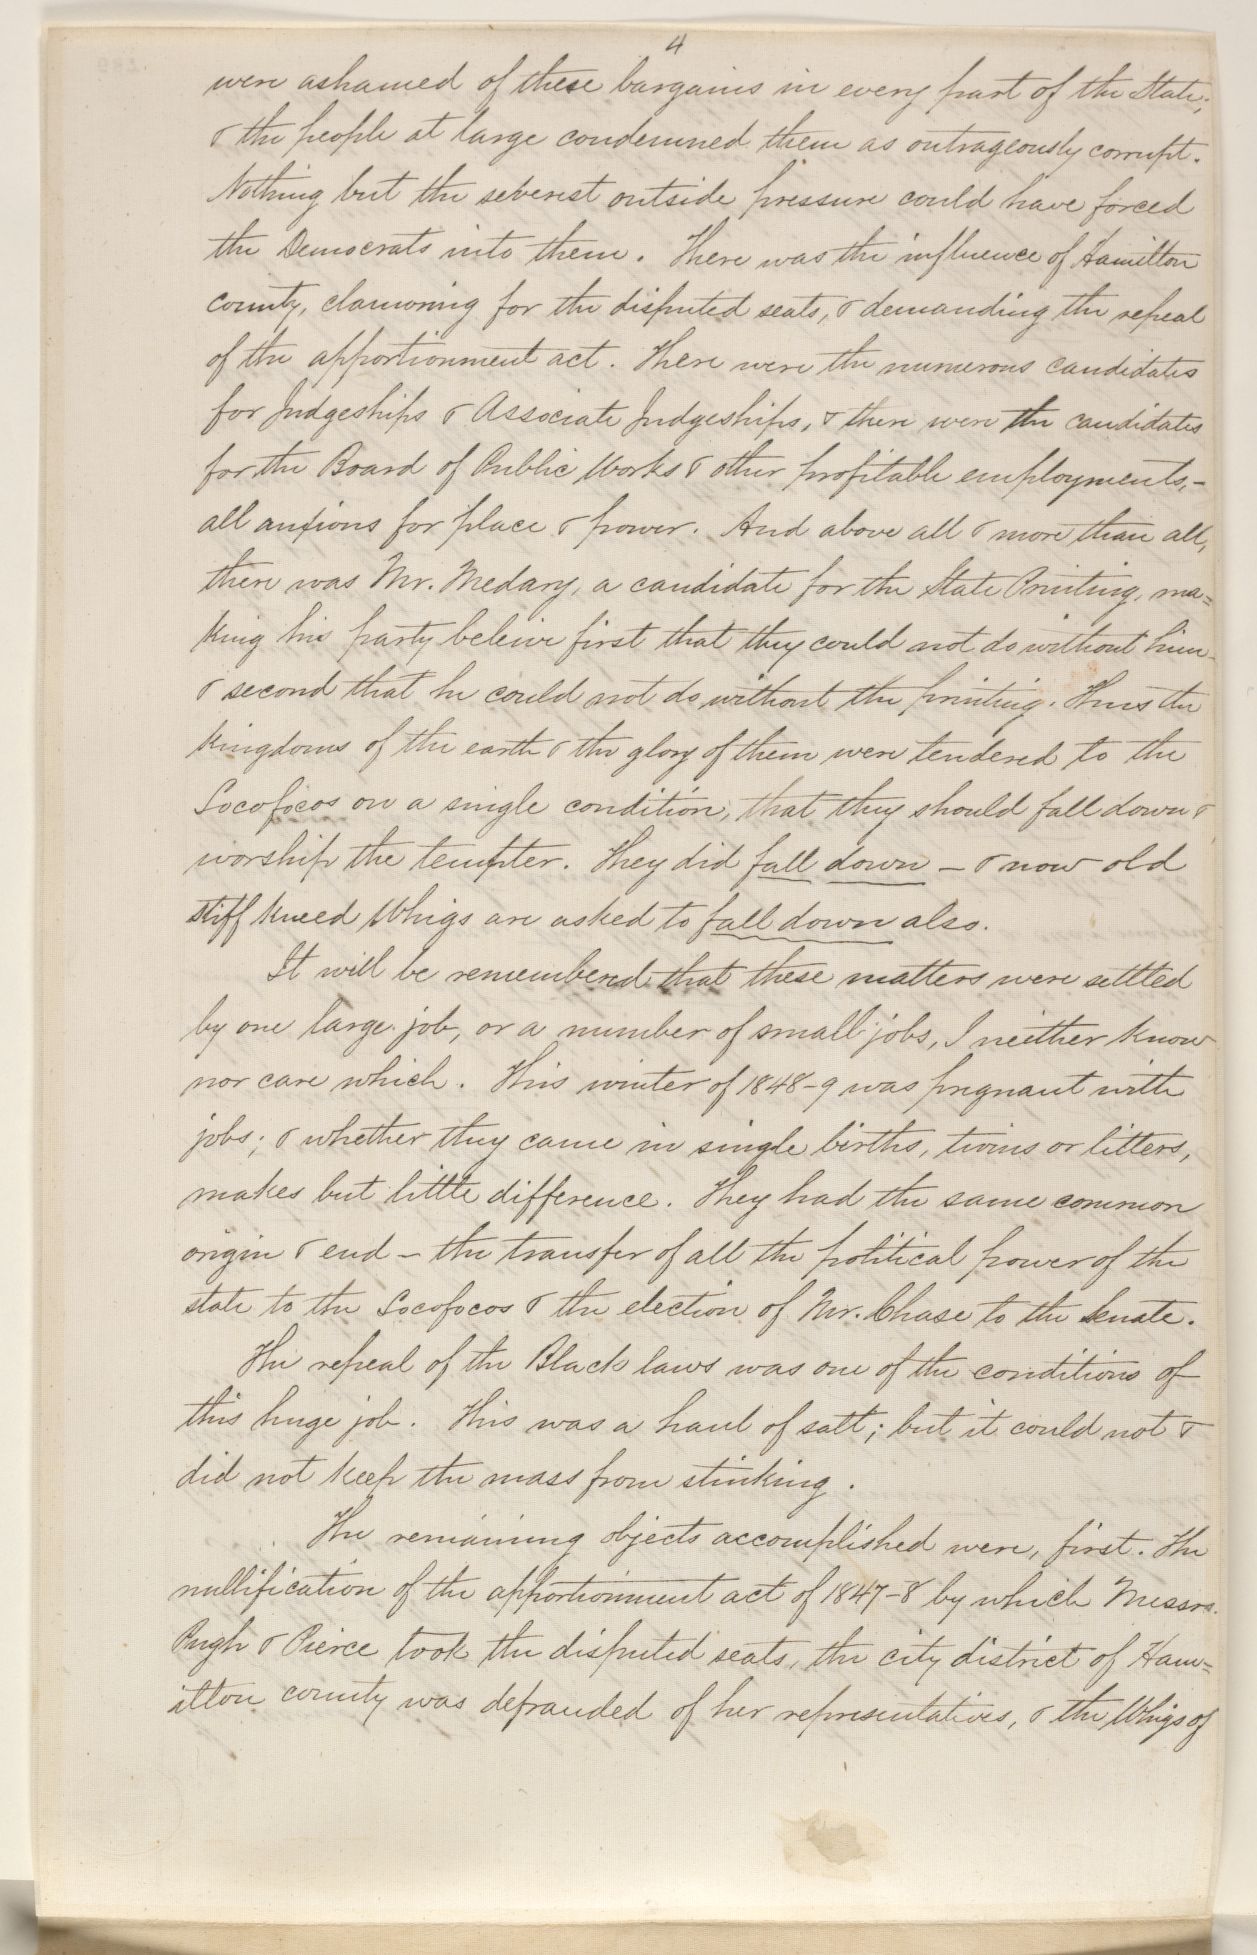 4
were ashamed of these bargains in every part of the State;
& the people at large condemned them as outrageously corrupt.
Nothing but the severest outside pressure could have forced
the Democrats into them. There was the influence of Hamilton
county, clamoring for the disputed seats, & demanding the repeal
of the apportionment act. There were the numerous candidates
for Judgeships & Associate Judgeships, & there were the candidates
for the Board of Public Works & other profitable employments,-
all anxious for place & power. And above all & more than all,
there was Mr. Medary, a candidate for the State Printing, ma=
king his party beleive first that they could not do without him-
& second that he could not do without the printing. Thus the
kingdoms of the earth & the glory of them were tendered to the
Locofocos on a single condition, that they should fall down &
worship the tempter. They did fall down - & now old
stiff kneed Whigs are asked to fall down also.
It will be remembered that these matters were settled
by one large job, or a number of small jobs, I neither know
nor care which. This winter of 1848-9 was pregnant with
jobs; & whether they came in single births, twins or litters,
makes but little difference. They had the same common
origin & end - the transfer of all the political power of the
state to the Locofocos & the election of Mr. Chase to the Senate.
The repeal of the Black laws was one of the conditions of
this huge job. This was a haul of salt; but it could not &
did not keep the mass from stinking.
The remaining objects accomplished were, first. The
nullification of the apportionment act of 1847-8 by which Messrs.
Pugh & Pierce took the disputed seats, the city district of Ham=
ilton county was defrauded of her representatives, & the Whigs of